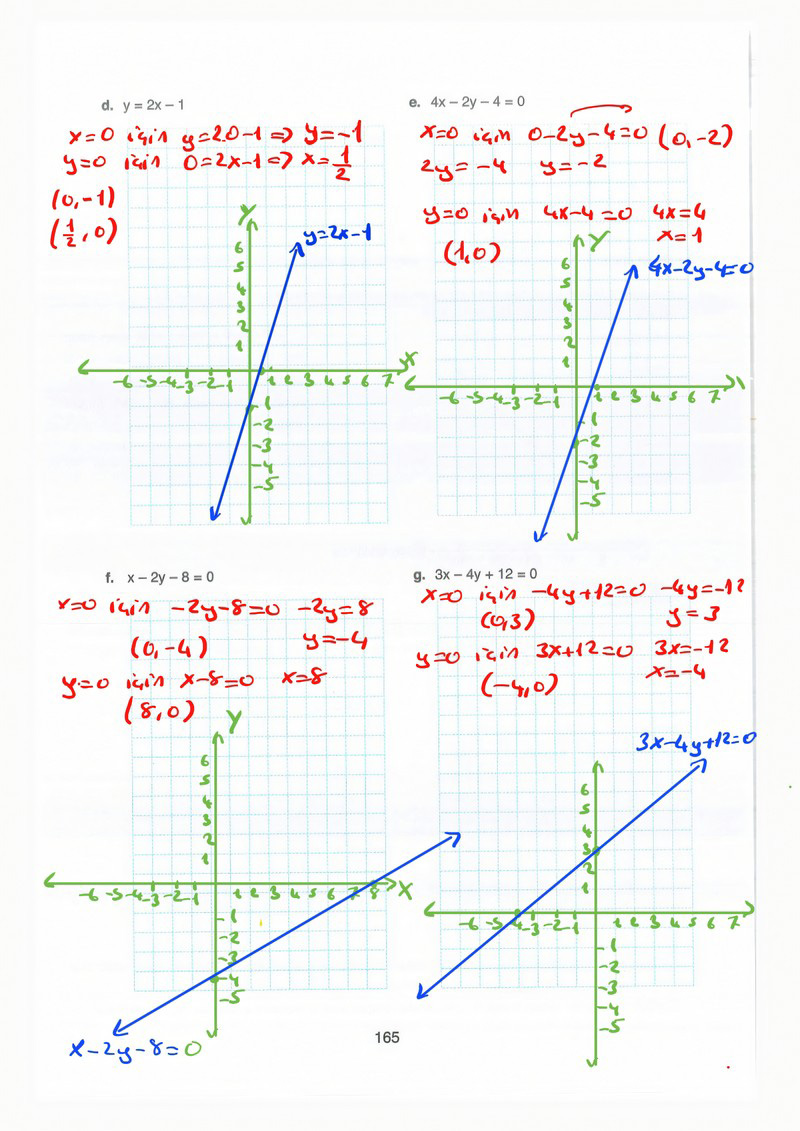 d. y = 2x – 1
x=0 için y=2.0-1 => y=-1
y=0 için 0=2x-1 => x=1/2
(0,-1)
(1/2, 0)
Y
y=2x-1
6
5
4
3
2
1
X
-6 -5 -4 -3 -2 -1 1 2 3 4 5 6 7
-1
-2
-3
-4
-5
e. 4x – 2y – 4 = 0
x=0 için 0-2y-4=0 (0,-2)
2y=-4 y=-2
y=0 için 4x-4=0 4x=4
x=1
(1,0)
Y
4x-2y-4=0
6
5
4
3
2
1
-6 -5 -4 -3 -2 -1 1 2 3 4 5 6 7
-1
-2
-3
-4
-5
f. x – 2y – 8 = 0
x=0 için -2y-8=0 -2y=8
(0,-4) y=-4
y=0 için x-8=0 x=8
(8,0)
Y
6
5
4
3
2
1
-6 -5 -4 -3 -2 -1 1 2 3 4 5 6 7 8 X
-1
-2
-3
-4
-5
x-2y-8=0
g. 3x – 4y + 12 = 0
x=0 için -4y+12=0 -4y=-12
(0,3) y=3
y=0 için 3x+12=0 3x=-12
(-4,0) x=-4
3x-4y+12=0
6
5
4
3
2
1
-6 -5 -4 -3 -2 -1 1 2 3 4 5 6 7
-1
-2
-3
-4
-5
165